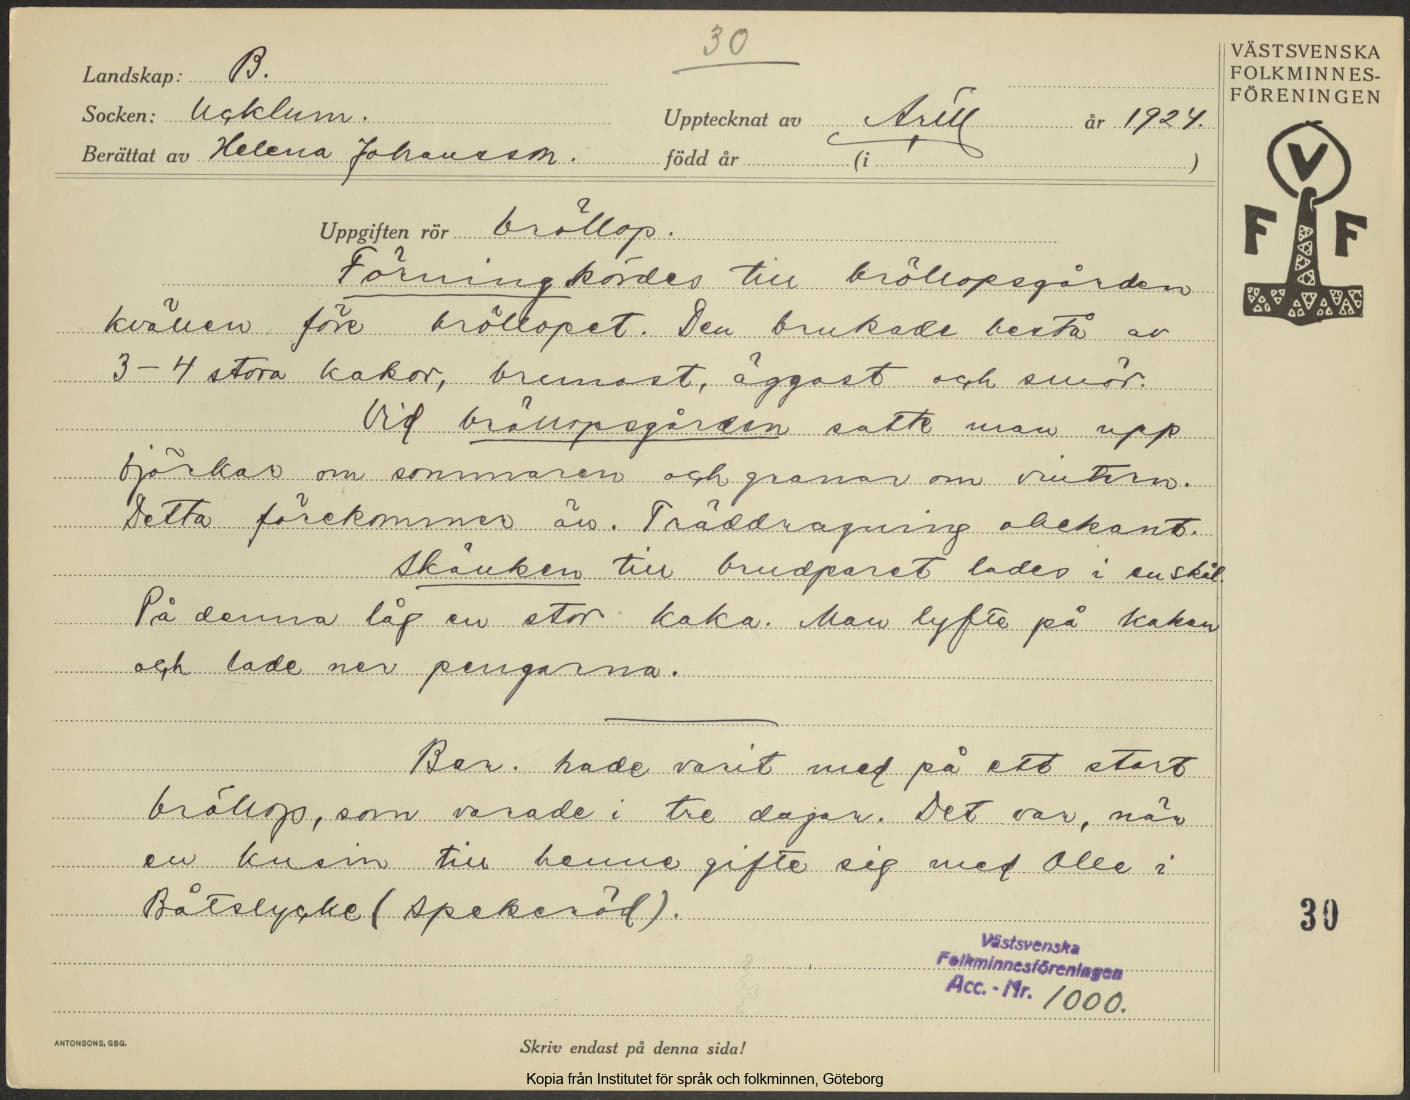 30
VÄSTSVENSKA
FOLKMINNES-
FÖRENINGEN
Landskap: B.
Socken: Ucklum.
Upptecknat av Arill år 1924.
Berättat av Helena Johansson.
född år (i )
V
F F
Uppgiften rör bröllop.
Förning kördes till bröllopsgården
kvällen före bröllopet. Den brukade bestå av
3-4 stora kakor, brunost, äggost och smör.
Vid bröllopsgården satte man upp
björkar om sommaren och granar om vintern.
Detta förekommer än. Träddragning obekant.
Skänken till brudparet lades i en skål.
På denna låg en stor kaka. Man lyfte på kakan
och lade ner pengarna.
Ber. hade varit med på ett stort
bröllop, som varade i tre dagar. Det var, när
en kusin till henne gifte sig med Olle i
Båtslycke (Spekeröd).
30
Västsvenska
Folkminnesföreningen
Acc. - Nr. 1000.
ANTONSONS, GBG.
Skriv endast på denna sida!
Kopia från Institutet för språk och folkminnen, Göteborg